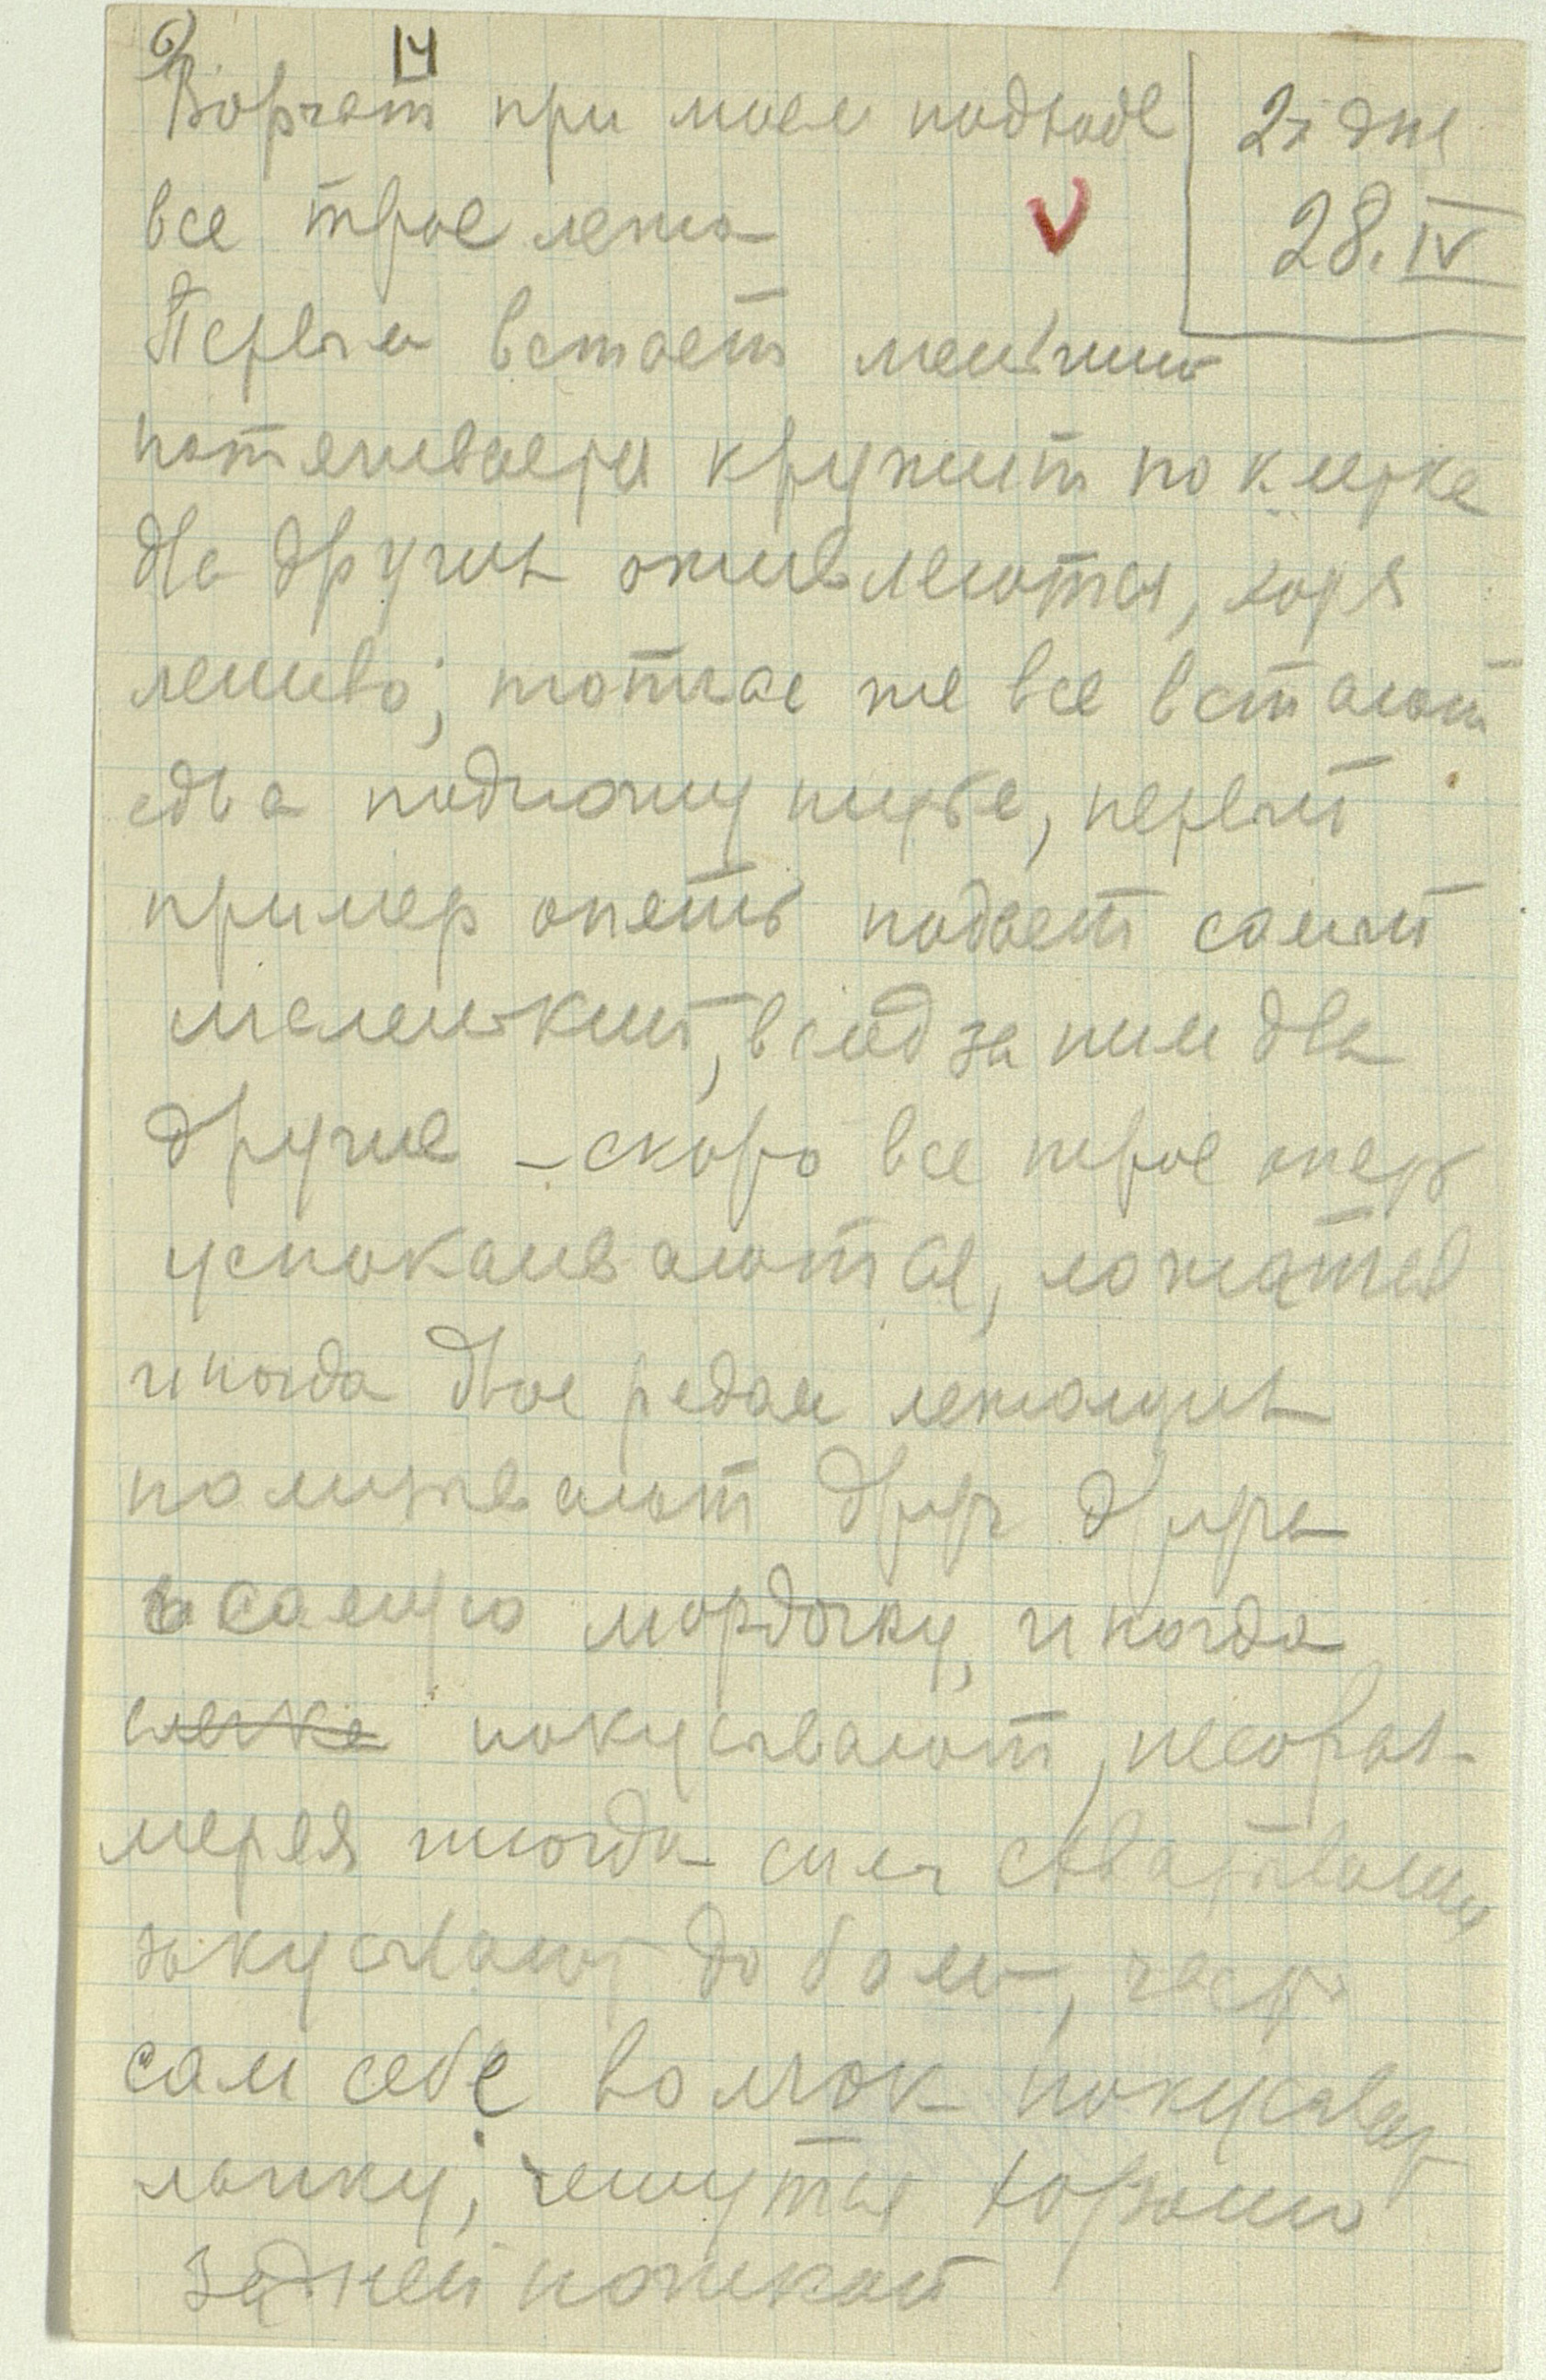 14
Ворчат при моем подходе
2й дне
все трое лежа
V
28.IV
Первым встает меньший
потягивается кружит по клетке
два других оживляются, хотя
лениво; тотчас же все встают
едва подхожу ближе, первый
пример опять подает самый
маленький, вслед за ним два
другие – скоро все трое опять
успокаиваются, ложатся
иногда двое рядом лежащих
полизывают друг друга
в самую мордочку, иногда
слегка покусывают, несораз-
меряя иногда силы схватывания
закусывают до боли, часто
сам себе волчок покусывает
лапку; чешутся хорошо
задней ножкой